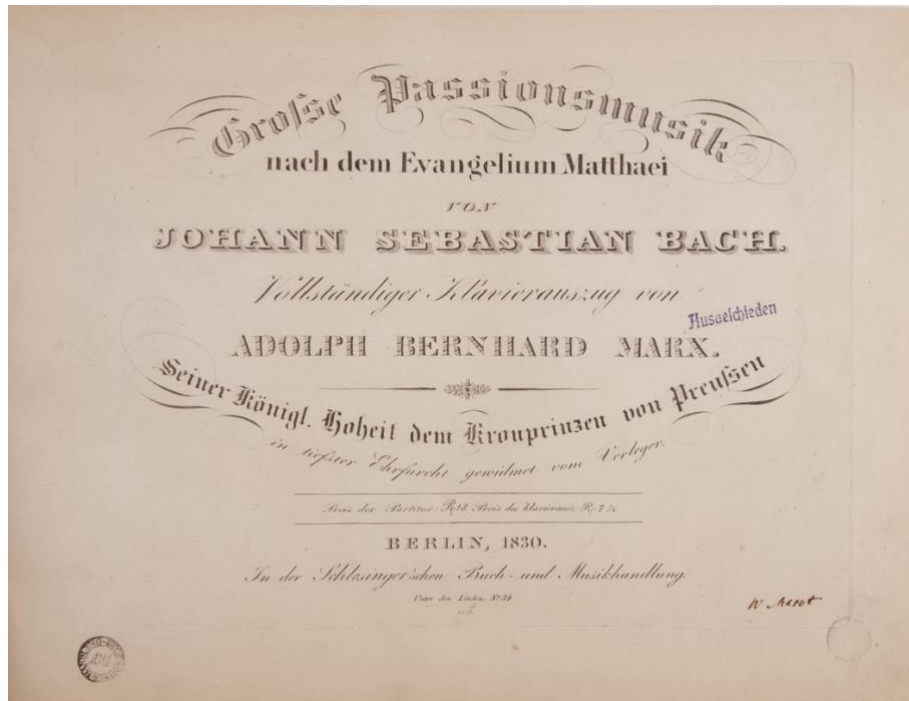 Große Passionsmusik
nach dem Evangelium Matthaei
VON
JOHANN SEBASTIAN BACH.
Vollständiger Klavierauszug von
Ausgeschieden
ADOLPH BERNHARD MARX.
Seiner Königl. Hoheit dem Kronprinzen von Preußen
in tiefster Ehrfurcht gewidmet vom Verleger.
Preis der Partitur R 18 Preis des Klavierausz. R 7½
BERLIN, 1830.
In der Schlesinger'schen Buch- und Musikhandlung.
Unter den Linden, No. 34.